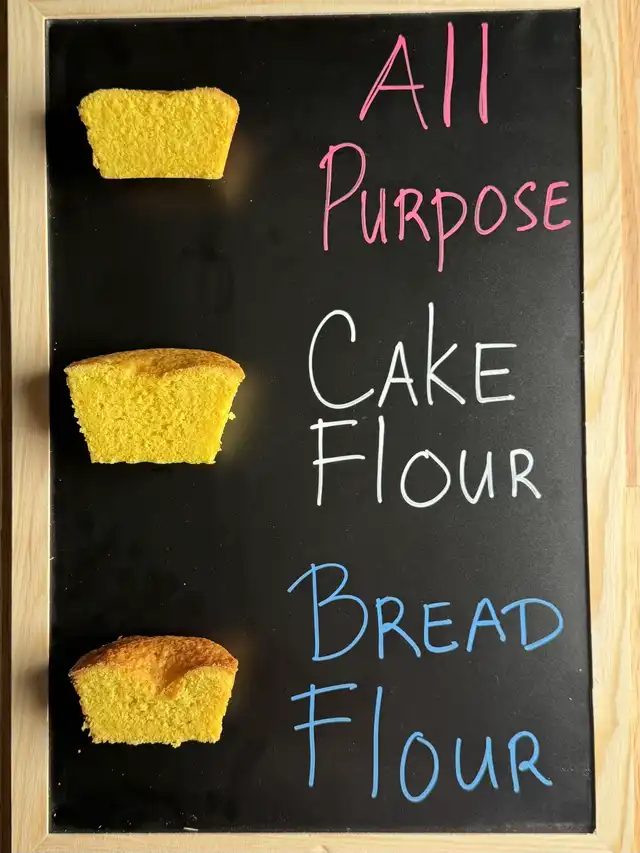 All
Purpose
Cake
Flour
Bread
Flour